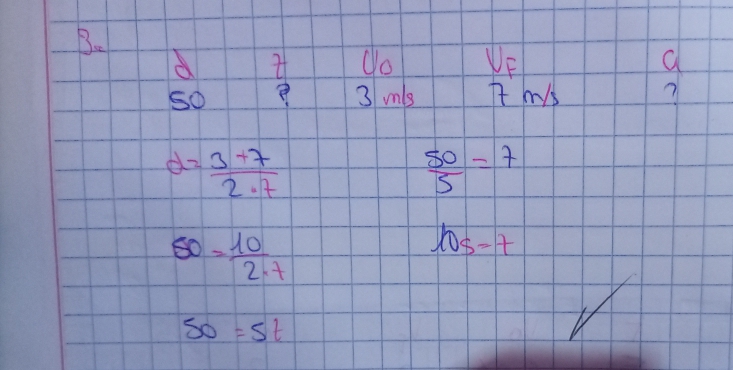 3=
d t Vo VF a
50 ? 3 m/s 7 m/s ?
d= 3+7 / 2.t 50/5 = t
50 = 10 / 2.t 10s = t
50 = 5t